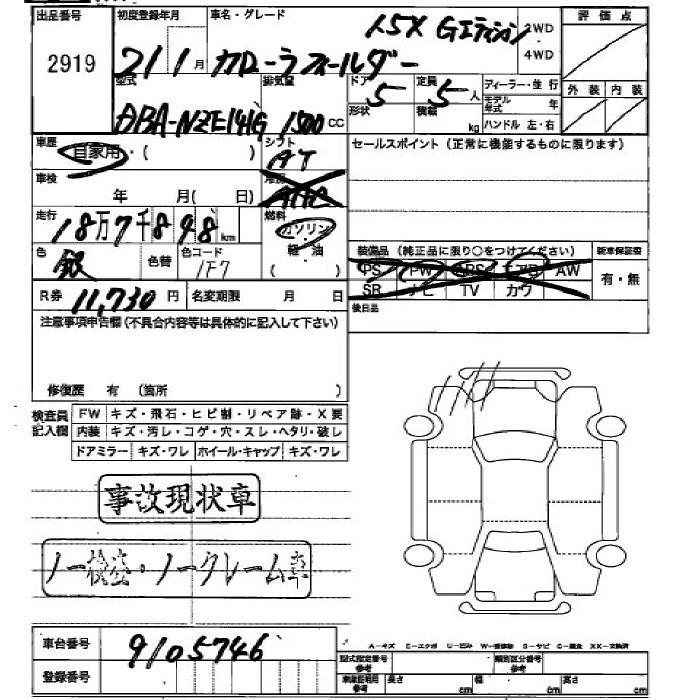 出品番号 初度登録年月 車名・グレード 評価点
2919 21 1 月 カローラフィールダー 1.5X Gエディション 2WD・4WD
型式 排気量 ドア 定員 ディーラー・並行 外装 内装
DBA-NZE141G 1500 CC 5 5人 モデル年式 年
形状 積載 kg ハンドル 左・右
車歴 自家用・( ) シフト AT セールスポイント(正常に機能するものに限ります)
車検 年 月( 日) 冷房 A/C
走行 18万7千898 km 燃料 ガソリン・軽油 ( )
色 銀 色替 色コード 1F7 装備品(純正品に限り○をつけてください) 新車保証書
PS PW ABS エアB AW 有・無
R券 11,730円 名変期限 月 日 SR ナビ TV カワ
注意事項申告欄(不具合内容等は具体的に記入して下さい) 後日品
修復歴 有 (箇所 )
検査員記入欄 FW キズ・飛石・ヒビ割・リペア跡・X要
内装 キズ・汚レ・コゲ・穴・スレ・ヘタリ・破レ
ドアミラー キズ・ワレ ホイール・キャップ キズ・ワレ
事故現状車
ノー検査・ノークレーム車
車台番号 9105746 型式指定番号 参考 類別区分番号 参考
登録番号 車庫証明用 参考 長さ cm 幅 cm 高さ cm